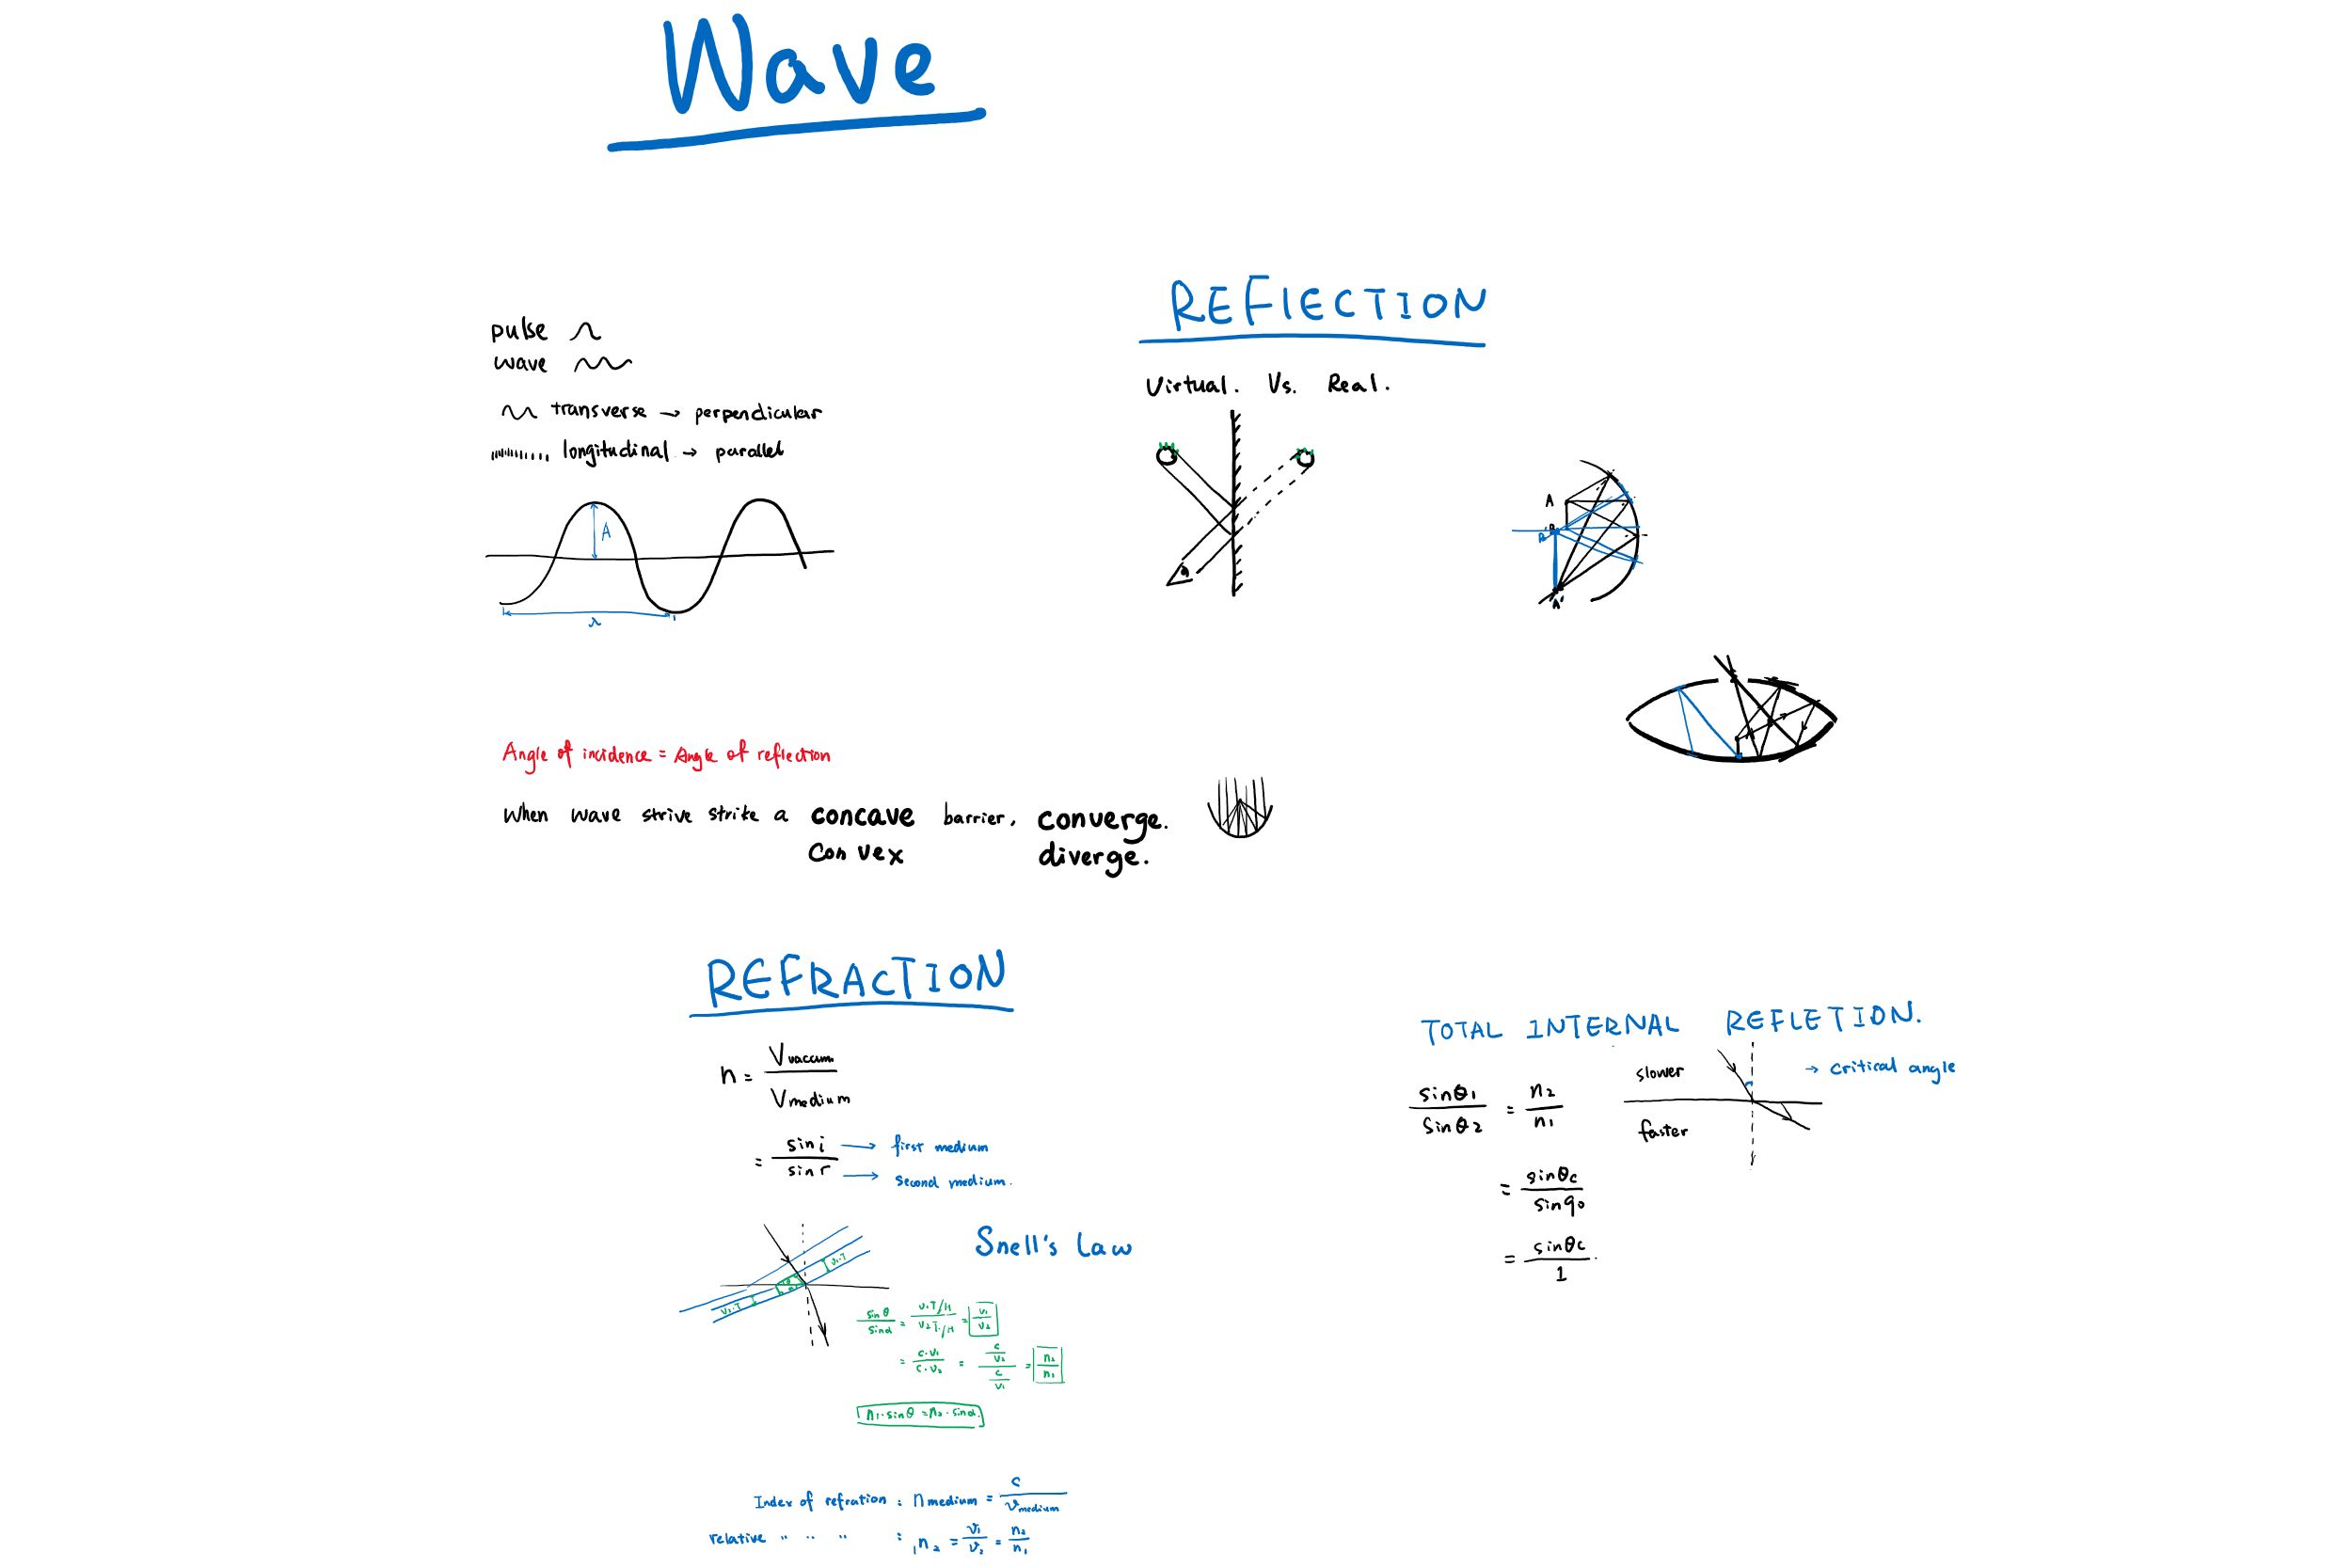 Wave
pulse
wave
transverse → perpendicular
longitudinal → parallel
A
λ
REFlECTION
Virtual. Vs. Real.
A
B
B'
A'
Angle of incidence = Angle of reflection
When wave strive strike a concave barrier, converge.
convex diverge.
REFRACTION
n = Vvaccum / Vmedium
= sin i / sin r
→ first medium
→ second medium.
Snell's Law
V₁·T
V₂·T
sinθ / sinα = V₁T/H / V₂T/H = V₁ / V₂
= C·V₁ / C·V₂ = C/V₂ / C/V₁ = n₂ / n₁
n₁·sinθ = n₂·sinα
Index of refration : n medium = c / v medium
relative " " " : ₁n₂ = v₁ / v₂ = n₂ / n₁
TOTAL INTERNAL REFLETION.
slower
→ critical angle
faster
sinθ₁ / sinθ₂ = n₂ / n₁
= sinθc / sin90
= sinθc / 1